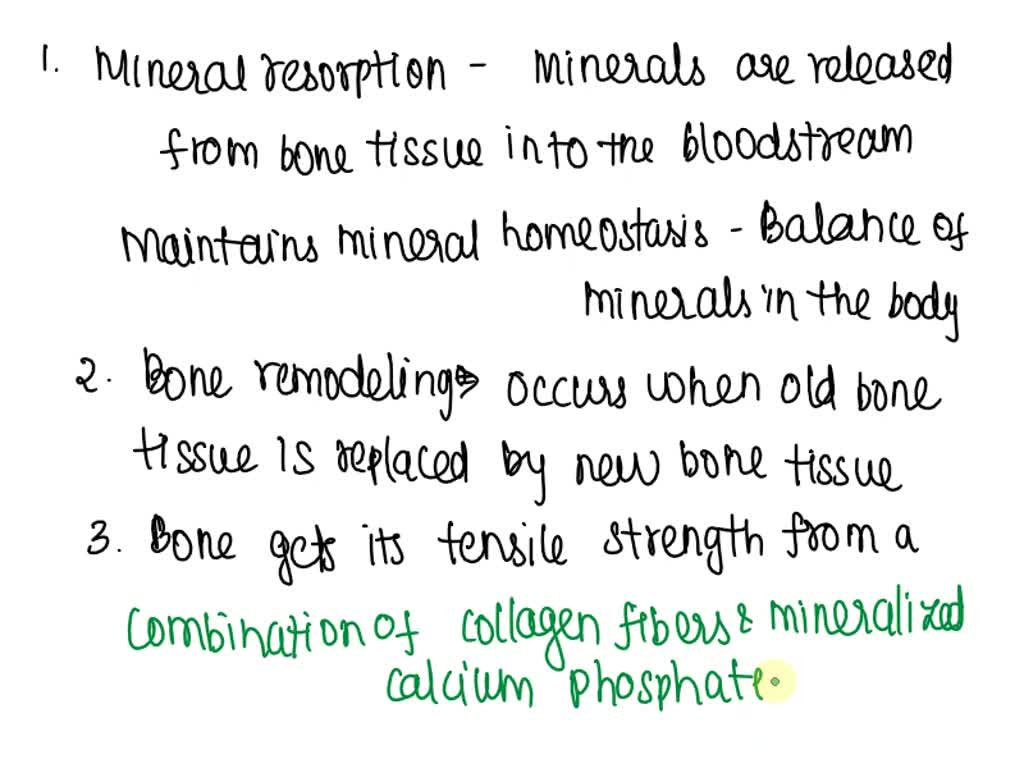 1. Mineral resorption - minerals are released
from bone tissue into the bloodstream
Maintains mineral homeostasis - Balance of
minerals in the body
2. Bone remodeling → occurs when old bone
tissue is replaced by new bone tissue
3. Bone gets its tensile strength from a
combination of collagen fibers & mineralized
calcium phosphate